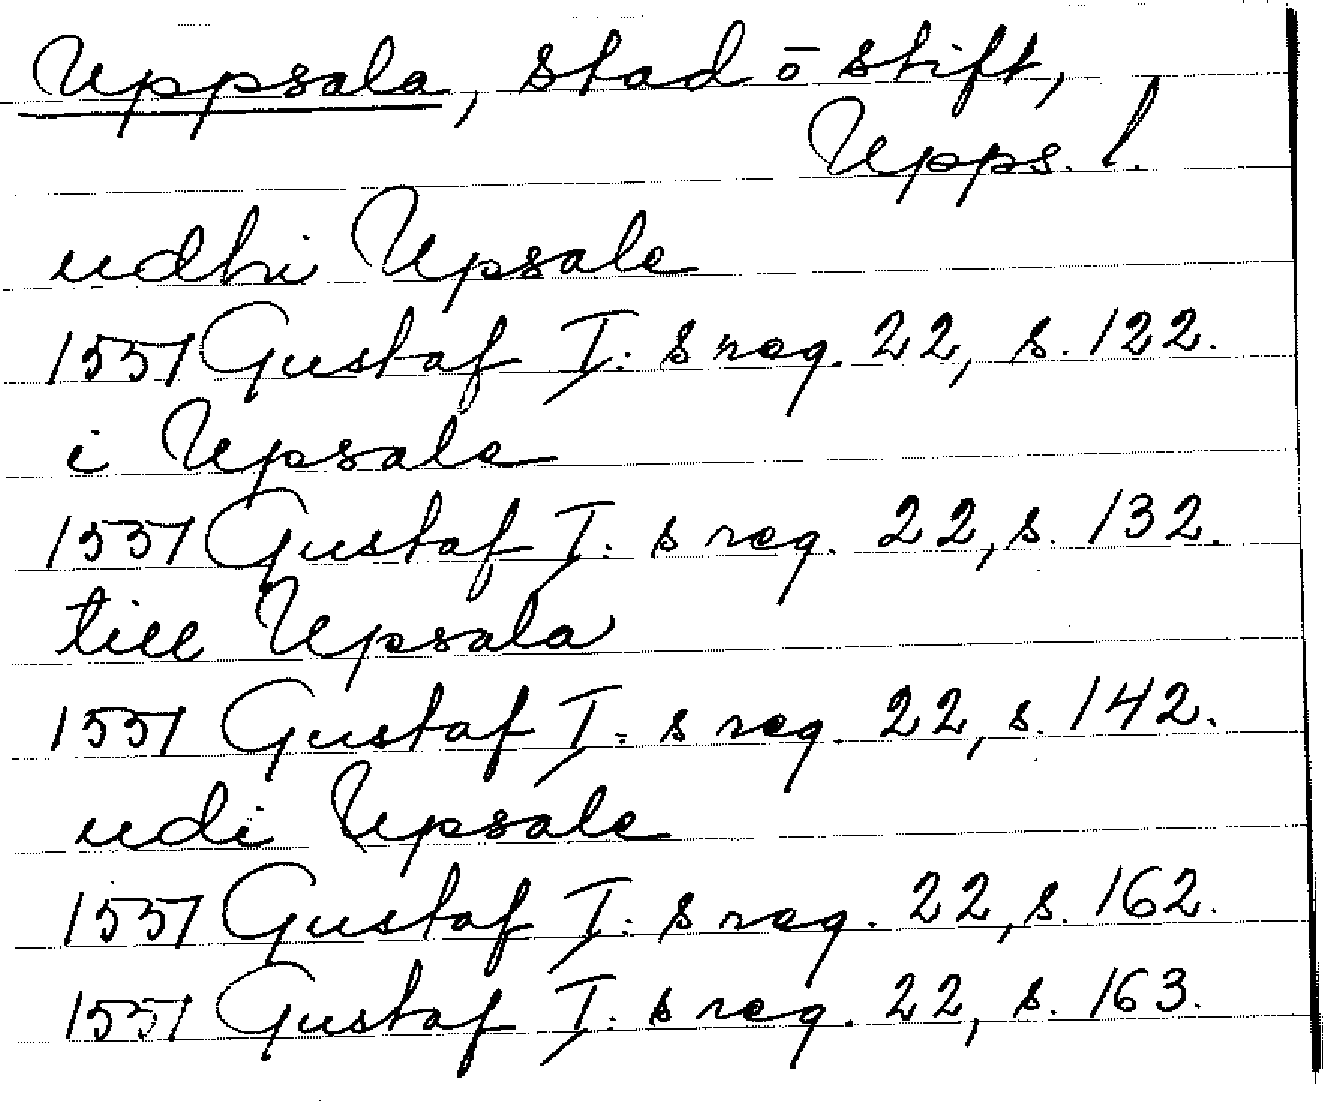 Uppsala, stad o stift,
Upps. l.
udhi Upsale
1551 Gustaf I: s reg. 22, s. 122.
i Upsale
1551 Gustaf I: s reg. 22, s. 132.
till Upsala
1551 Gustaf I: s reg. 22, s. 142.
udi Upsale
1551 Gustaf I: s reg. 22, s. 162.
1551 Gustaf I: s reg. 22, s. 163.